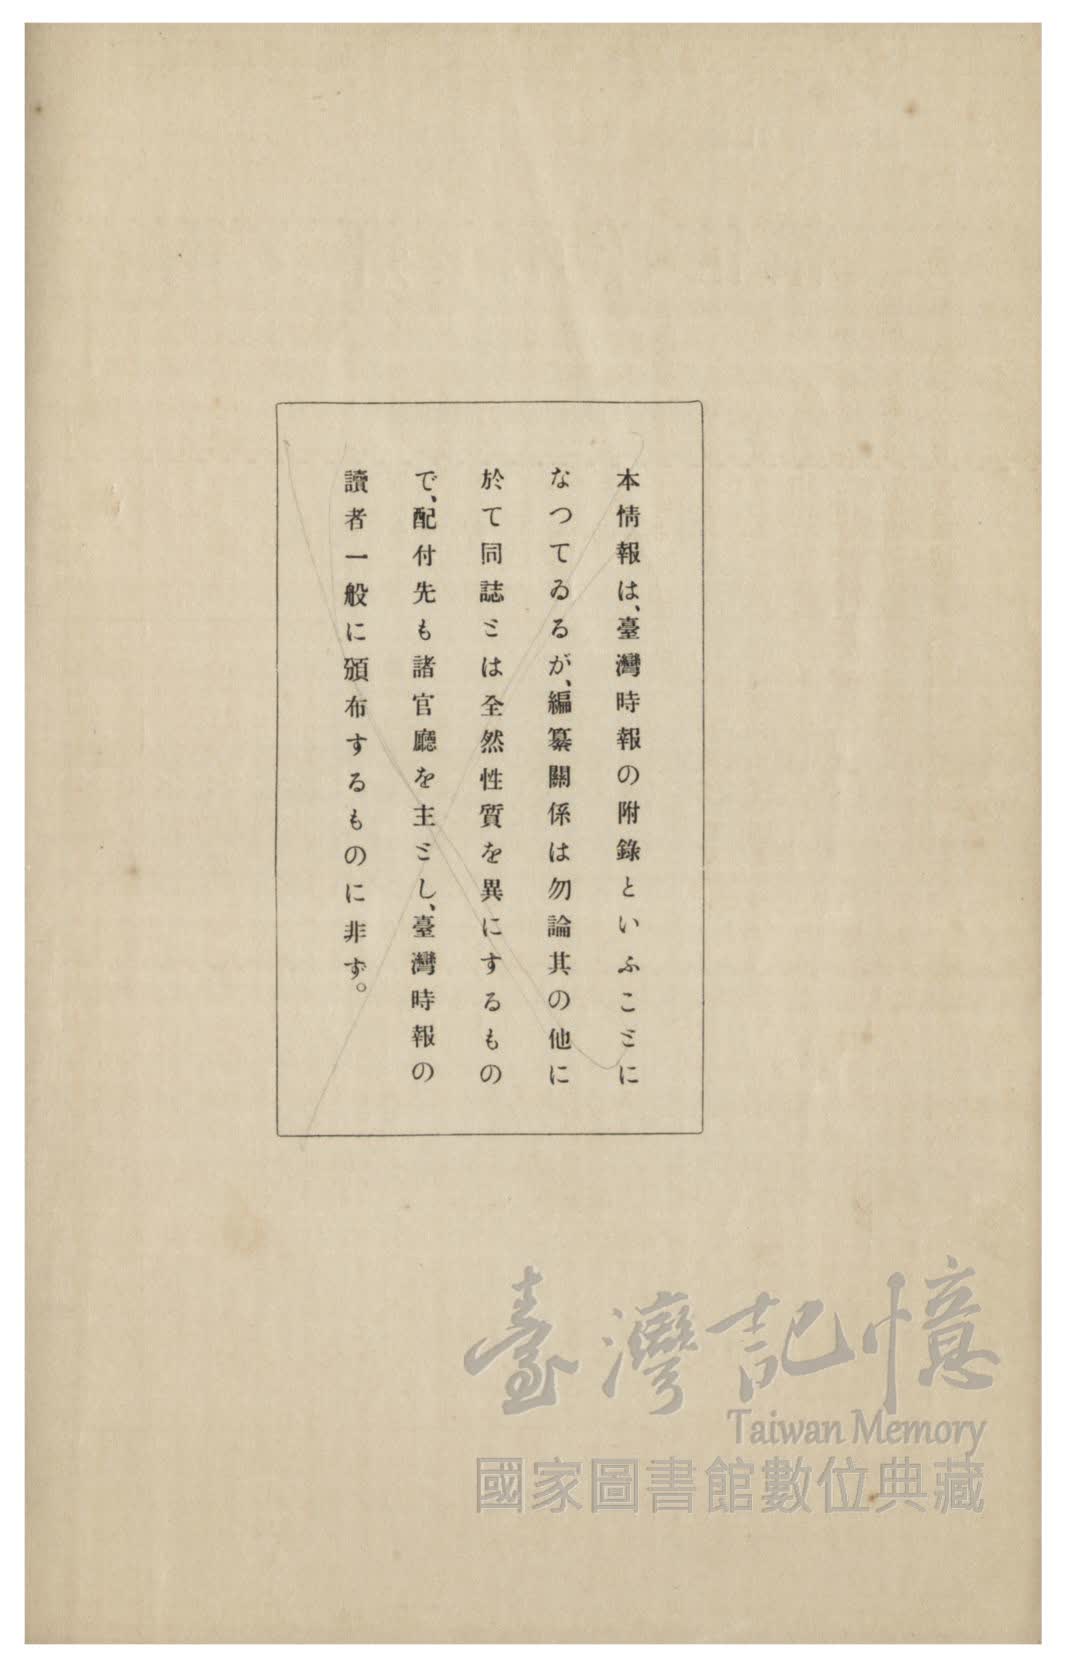 本情報は、臺灣時報の附錄といふこﾐに
なつてゐるが、編纂關係は勿論其の他に
於て同誌ﾐは全然性質を異にするもの
で、配付先も諸官廳を主ﾐし、臺灣時報の
讀者一般に頒布するものに非ず。
臺灣記憶
Taiwan Memory
國家圖書館數位典藏